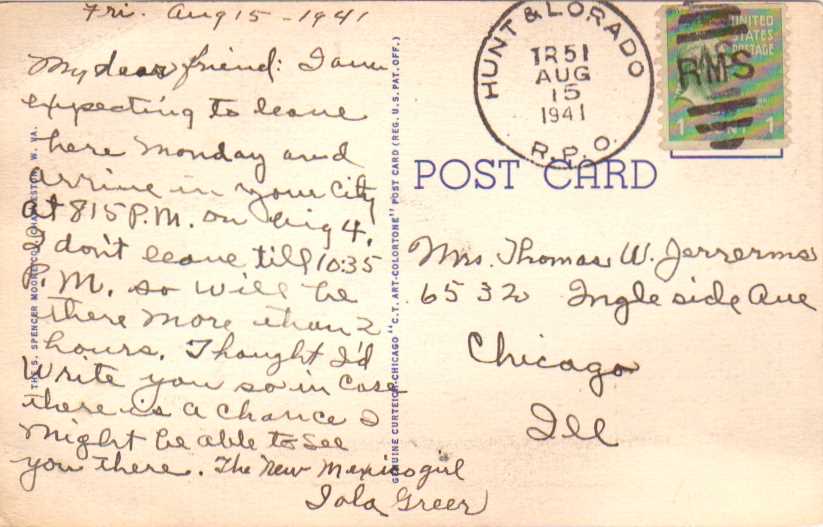 Fri. Aug 15 - 1941
My dear friend: I am
expecting to leave
here Monday and
arrive in your city
at 815 P.M. on Aug 4.
I don't leave till 10:35
P.M. so will be
there more than 2
hours. Thought I'd
write you so in case
there is a chance I
might be able to see
you there. The New Mexico girl
Iola Greer
THE S. SPENCER MOORE CO., CHARLESTON, W. VA.
GENUINE CURTEICH-CHICAGO "C.T. ART-COLORTONE" POST CARD (REG. U.S. PAT. OFF.)
HUNT & LORADO
TR 51
AUG
15
1941
R.P.O.
RMS
UNITED
STATES
POSTAGE
1 1
POST CARD
Mrs. Thomas W. Jerrerms
6532 Ingleside Ave
Chicago
Ill